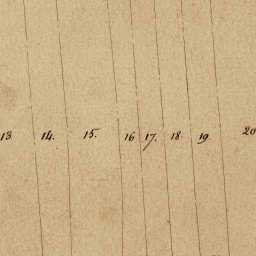 13 14. 15. 16 17. 18 19 20